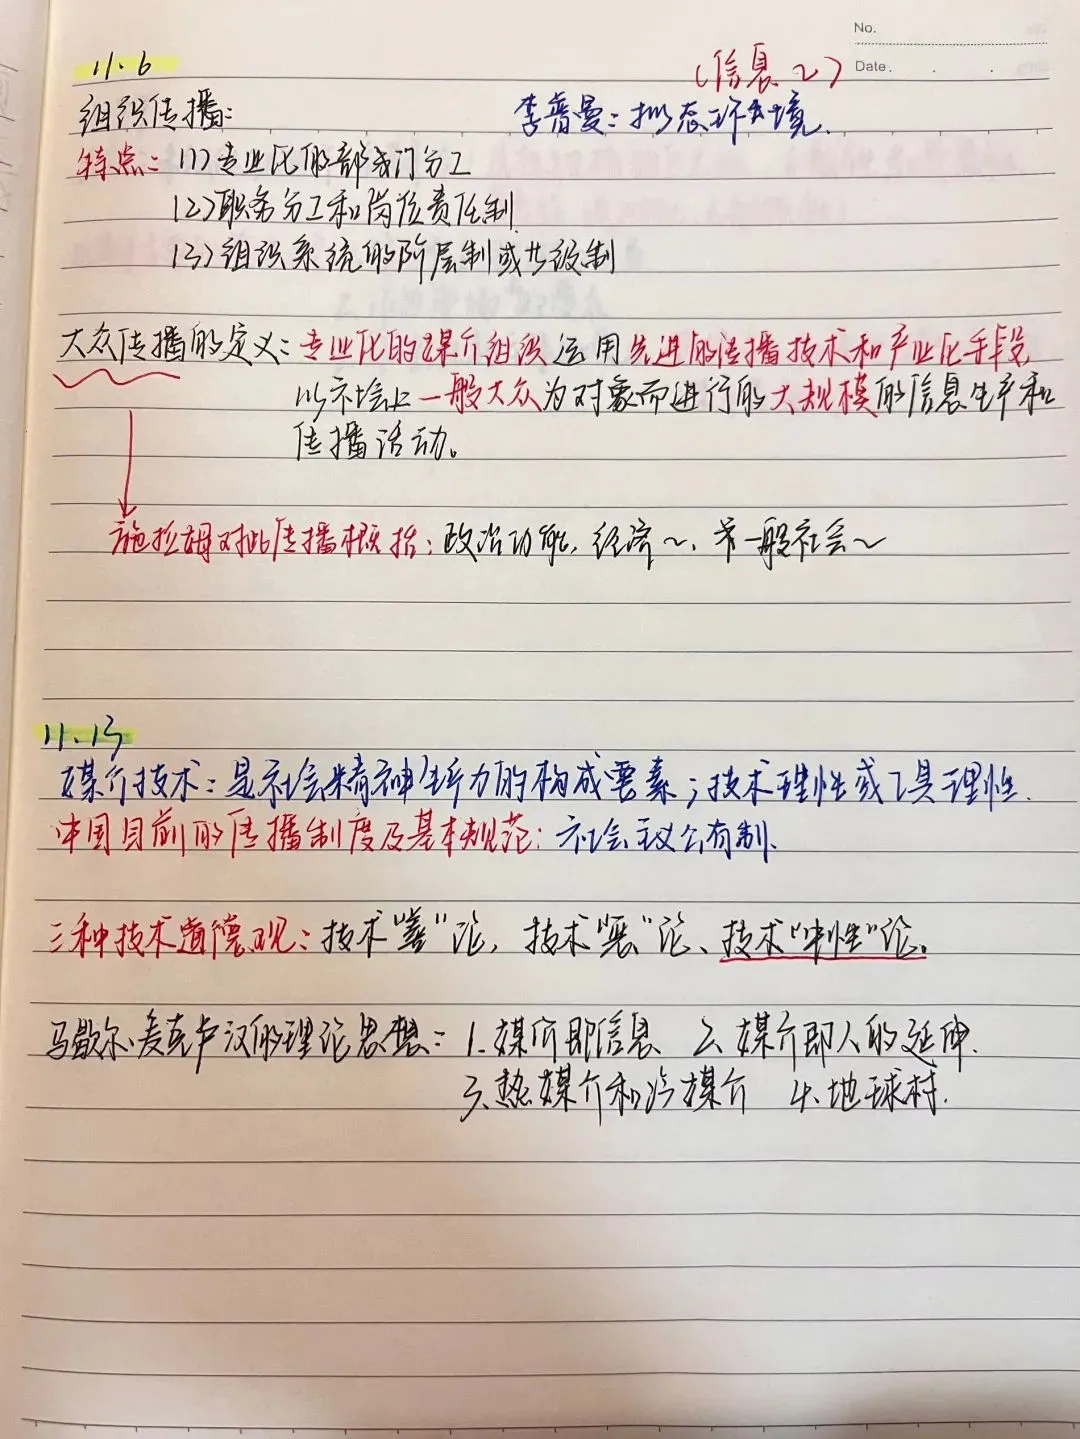 No.
Date.
11.6
(信息~)
组织传播:
李普曼:拟态环境.
特点:(1)专业化的部或门分工
(2)职务分工和岗位责任制
(3)组织系统的阶层制或共级制
大众传播的定义:专业化的媒介组织运用先进的传播技术和产业化手段
以社会上一般大众为对象而进行的大规模的信息生产和
传播活动。
施拉姆对此传播概括:政治功能,经济~、一般社会~
11.13
媒介技术:是社会精神生产力的构成要素;技术理性或工具理性.
中国目前的传播制度及基本规范:社会主义公有制.
三种技术道德观:技术"善"论,技术"恶"论、技术"中性"论。
马歇尔·麦克卢汉的理论思想:1.媒介即信息 2.媒介即人的延伸.
3、热媒介和冷媒介 4.地球村.